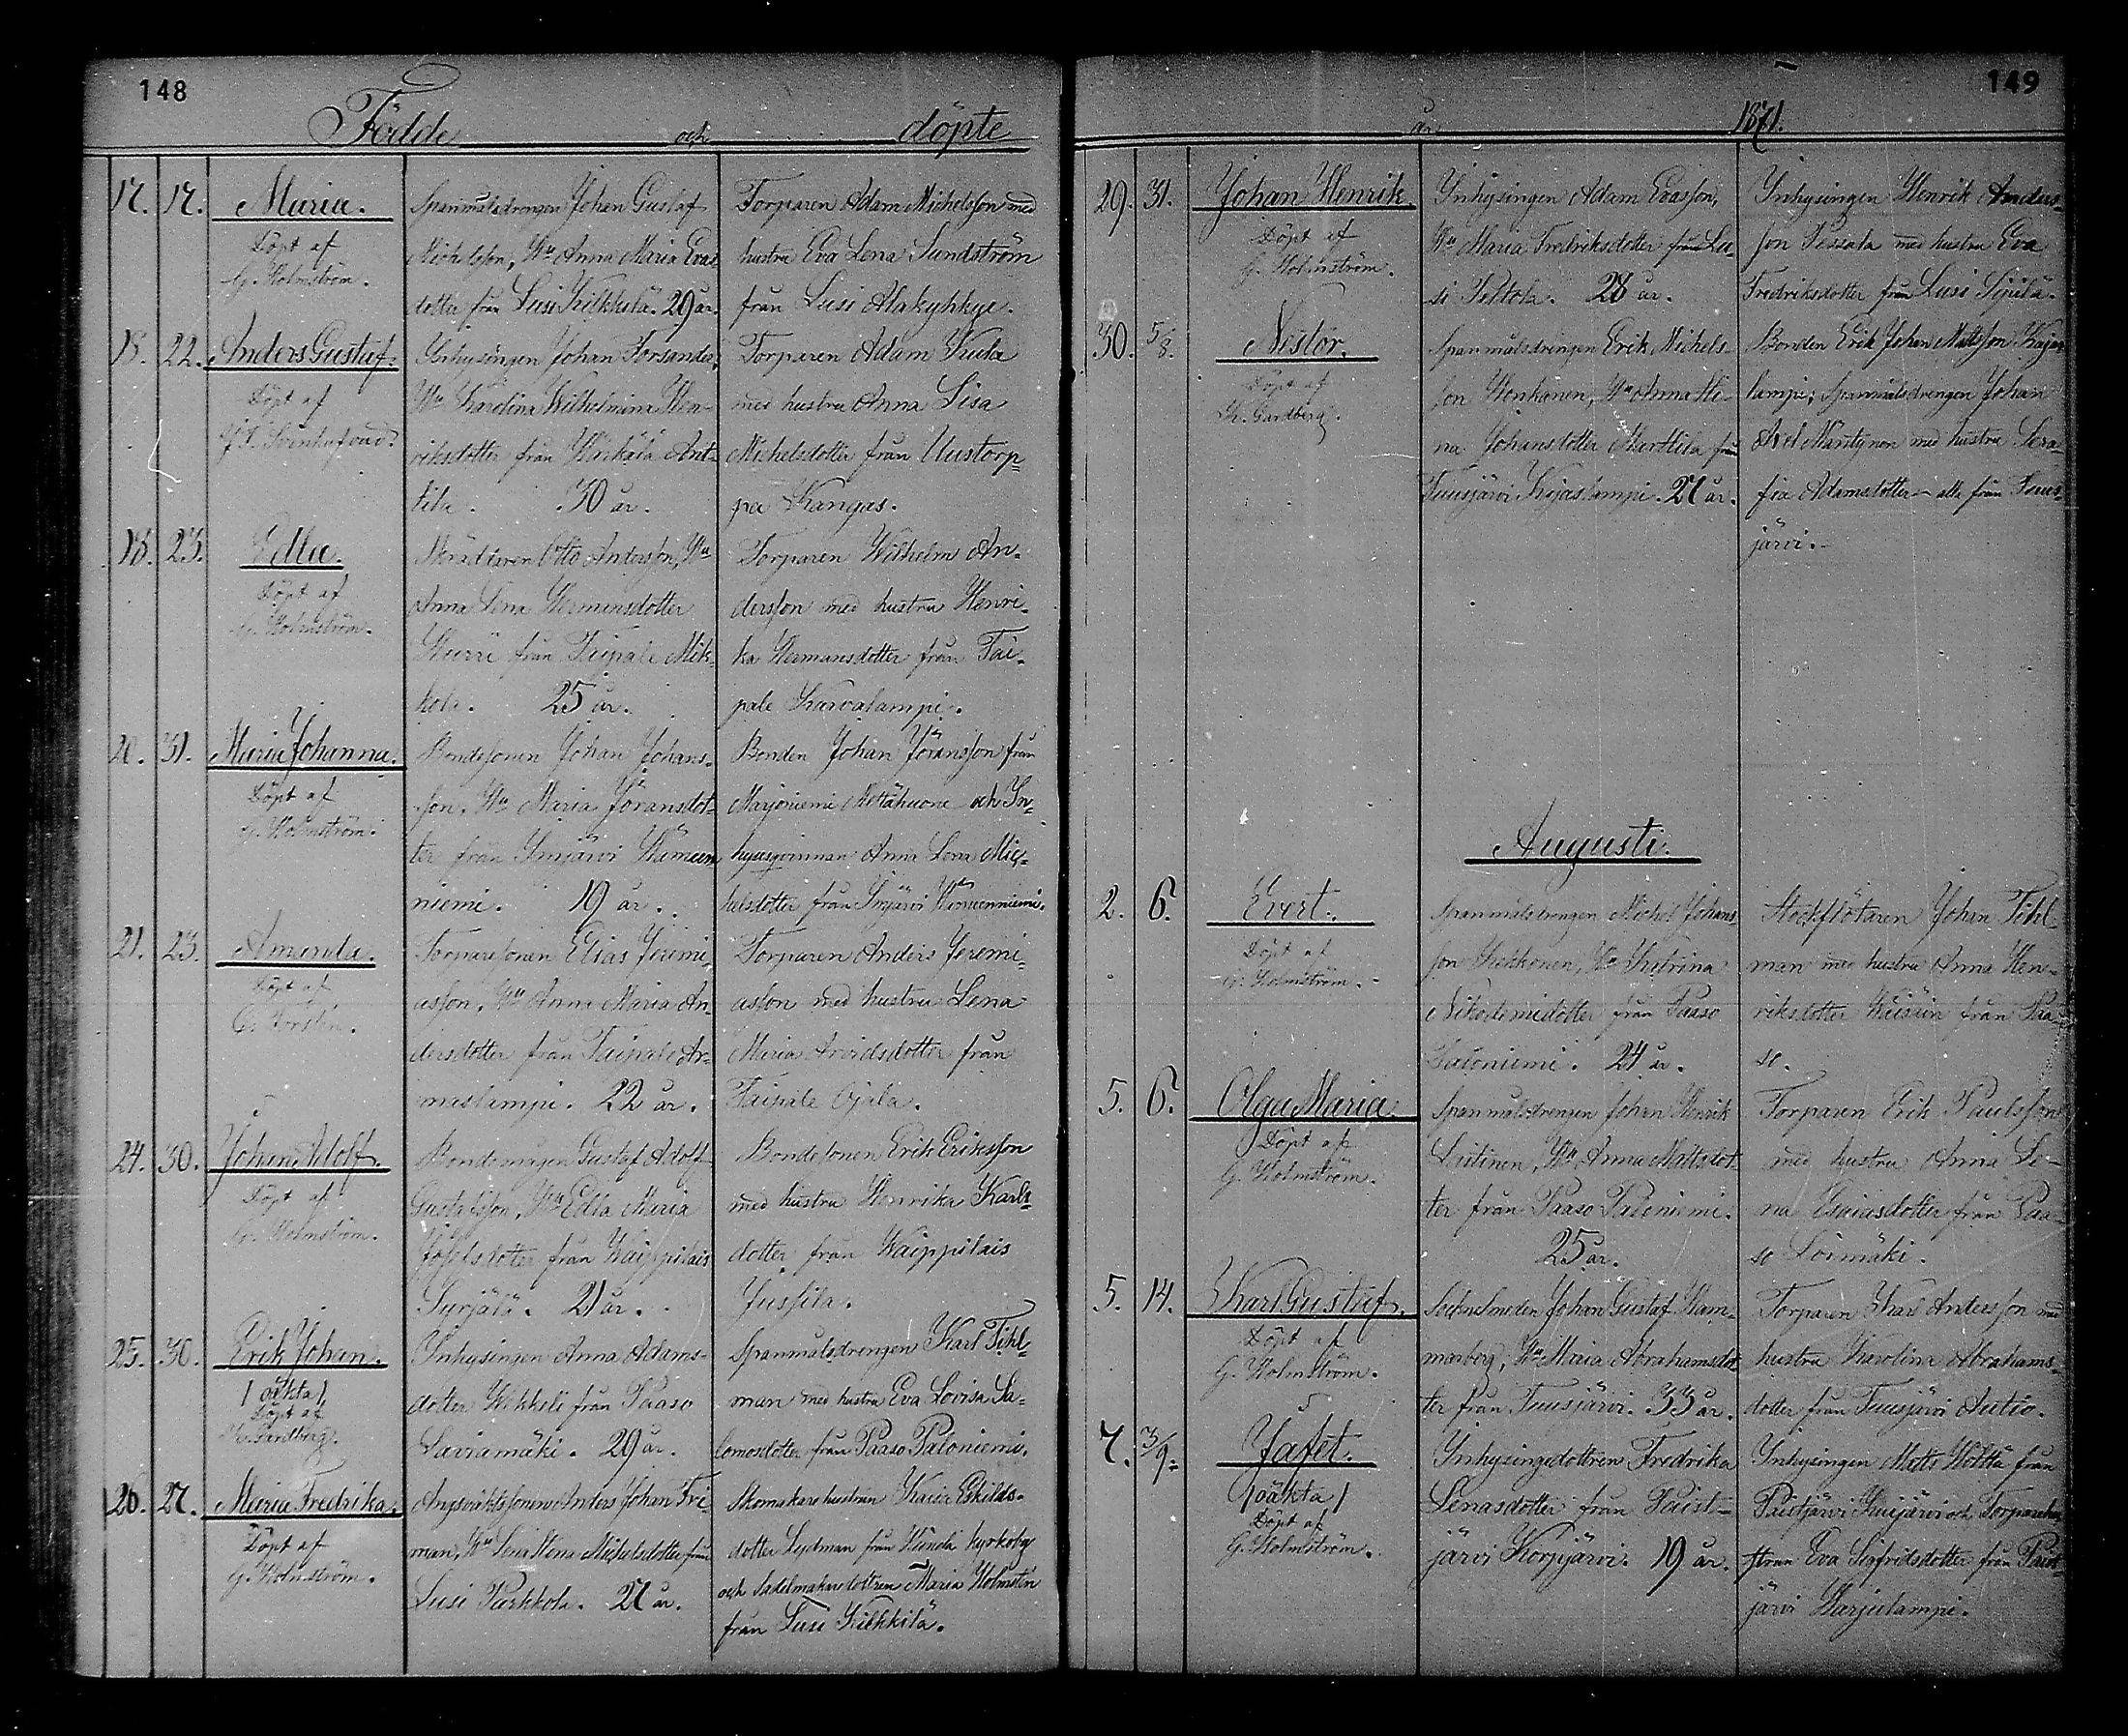 148
Födde och döpte
17. 17. Maria.
Döpt af
G. Holmström.
Spanmålsdrengen Johan Gustaf
Michelsson, Hu Anna Maria Evas-
dotter från Lusi Kilkkilä. 29 år.
Torparen Adam Michelsson med
hustru Eva Lena Sundström
från Lusi Alakyhkye.
18. 22. Anders Gustaf.
Döpt af
Ynhysingen Johan Forsander,
Hu Karolina Wilhelmina Hen-
riksdotter från Härkälä Ant-
tila. 30 år.
Torparen Adam Kula
med hustru Anna Lisa
Michelsdotter från Uustorp-
pa Kangas.
18. 23. Edla.
Döpt af
G. Holmström.
Skräddaren Otto Andersson, Hu
Anna Lena Hermansdotter
Hurri från Taipale Mik-
kola. 25 år.
Torparen Wilhelm An-
dersson med hustru Henri-
ka Hermansdotter från Tai-
pale Karvalampi.
20. 31. Maria Johanna.
Döpt af
G. Holmström.
Bondesonen Johan Johans-
son, Hu Maria Jöransdot-
ter från Imjärvi Hämeen
niemi. 19 år.
Bonden Johan Jöransson från
Marjoniemi Mettähuone och In-
hysesqvinnan Anna Lena Mic-
helsdotter från Imjärvi Hämeenniemi.
21. 23. Amanda.
Döpt af
C. Forstén.
Torparesonen Elias Jeremi-
asson, Hu Anna Maria An-
dersdotter från Taipale Ar-
maslampi. 22 år.
Torparen Anders Jeremi-
asson med hustru Lena
Maria Arvidsdotter från
Taipale Ojala.
24. 30. Johan Adolf.
Döpt af
G. Holmström.
Bondemågen Gustaf Adolf
Gustafsson, Hu Edla Maria
Josefsdotter från Waippilais
Syrjälä. 21 år.
Bondesonen Erik Eriksson
med hustru Henrika Karls-
dotter från Waippilais
Jussila.
25. 30. Erik Johan.
/oäkta/
Döpt af
K. Gardberg.
Ynhysingen Anna Adams-
dotter Wikkeli från Paaso
Saviamäki. 29 år.
Spanmålsdrengen Karl Tihl-
man med hustru Eva Lovisa Sa-
lomosdotter från Paaso Paloniemi.
26. 27. Maria Fredrika.
Döpt af
G. Holmström.
Anders Johan Fri-
man, Hu Lena Stena Michelsdotter från
Lusi Parkkola. 27 år.
Skomakarehustrun Kaisa Eskilds-
dotter Lydman från Heinola kyrkoby
och Sadelmakaredottren Maria Holmstén
från Lusi Kilkkilä.
149
år 1871.
29. 31. Johan Henrik.
Döpt af
G. Holmström.
Ynhysingen Adam Evasson,
Hu Maria Fredriksdotter från Lu-
si Peltola. 28 år.
Ynhysingen Henrik Anders-
son Pessala med hustru Eva
Fredriksdotter från Lusi Sipilä.
30. 5/8. Nestor.
Döpt af
K. Gardberg.
Spanmålsdrengen Erik Michels-
son Honkanen, Hu Anna Ste-
na Johansdotter Marttila från
Tuusjärvi Kajaslampi. 27 år.
Bonden Erik Johan Mattsson Kajas
lampi; Spanmålsdrengen Johan
Axel Mäntynen med hustru Sera-
fia Adamsdotter – alla från Tuus-
järvi.
Augusti.
2. 6. Evert.
Döpt af
G. Holmström.
Spanmålsdrengen Michel Johans
son Kekkonen, Hu Katrina
Nikodemidotter från Paaso
Paloniemi. 24 år.
Stockflötaren Johan Tihl-
man med hustru Anna Hen-
riksdotter från Paa-
so.
5. 6. Olga Maria
Döpt af
G. Holmström.
Spanmålsdrengen Johan Henrik
Leitinen, Hu Anna Mattsdot-
ter från Paaso Paloniemi.
25 år.
Torparen Erik Paulsson
med hustru Anna Le-
na Esaiasdotter från Paa-
so Loimäki.
5. 14. Karl Gustaf.
Döpt af
G. Holmström.
Socknesmeden Johan Gustaf Ham-
marberg, Hu Maria Abrahamsdot-
ter från Tuusjärvi. 33 år.
Torparen Karl Andersson med
hustru Karolina Abrahams-
dotter från Tuusjärvi Autio.
7. 3/9. Jafet.
/oäkta/
Döpt af
G. Holmström.
Ynhysingedottren Fredrika
Lenasdotter från Paist-
järvi Korpijärvi. 19 år.
Ynhysingen Matts Hölttä från
Paistjärvi Kuijärvi och Torparehu-
strun Eva Sigfridsdotter från Paist
järvi Harjulampi.